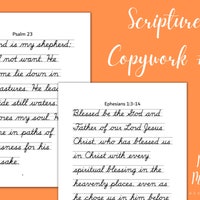 Scripture
Copywork
Psalm 23
is my shepherd;
not want. He
me lie down in
pastures. He leads
side still waters.
restores my soul. He
me in paths of
righteousness for his
sake.
Ephesians 1:3-14
Blessed be the God and
Father of our Lord Jesus
Christ, who has blessed us
in Christ with every
spiritual blessing in the
heavenly places, even as
he chose us in him before